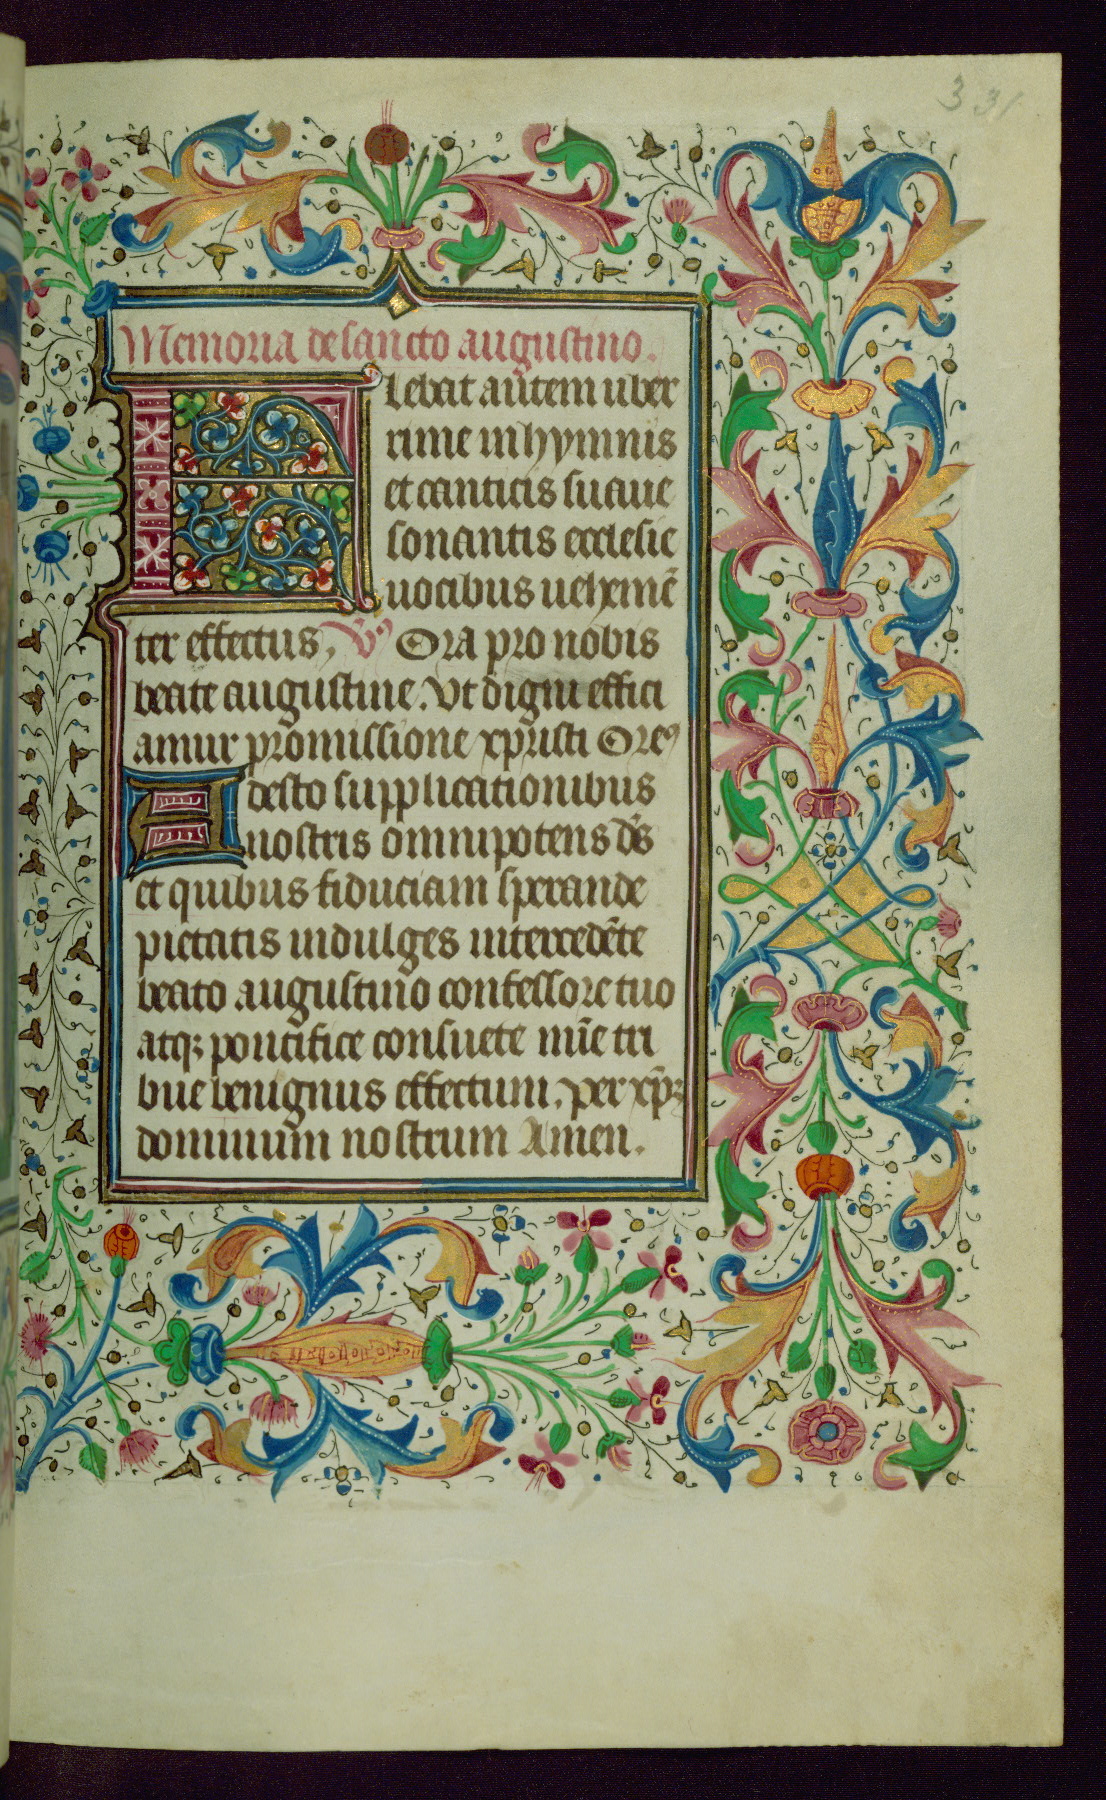 331
Memoria de sancto augustino.
Flebat autem uber
rime in hymnis
et canticis suaue
sonantis ecclesie
uocibus uehemē
ter effectus, V⁹ Ora pro nobis
beate augustine. Vt digni effici
amur promissione xpristi Ore⁹
Adesto supplicationibus
nostris omnipotens d̄s
et quibus fiduciam sperande
pietatis indulges intercedēte
beato augustino confessore tuo
atqꝫ pontifice consuete mīe tri
bue benignus effectum. per xp̄ꝫ
dominum nostrum Amen.